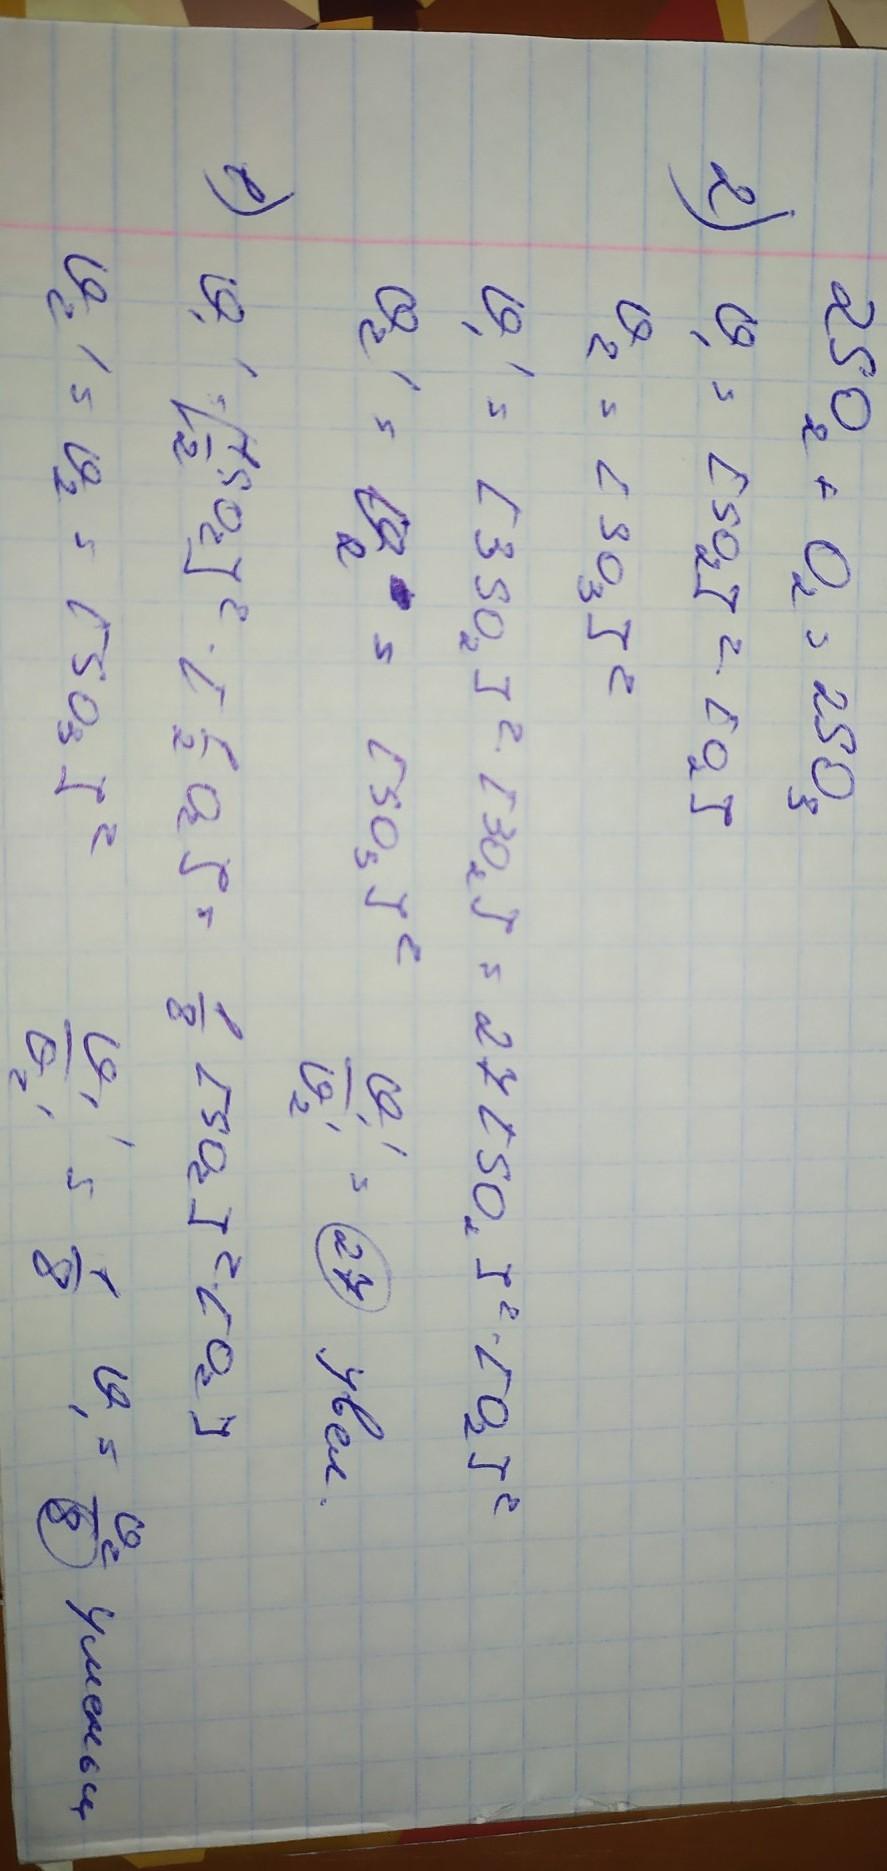 2SO₂ + O₂ = 2SO₃
2) υ₁ = [SO₂]² · [O₂]
υ₂ = [SO₃]²
υ₁' = [3SO₂]² · [3O₂] = 27[SO₂]² · [O₂]²
υ₂' = υ₂ = [SO₃]² υ₁'/υ₂' = 27 увел.
υ₁' = [1/2 SO₂]² · [1/2 O₂] = 1/8 [SO₂]² · [O₂]
υ₂' = υ₂ = [SO₃]² υ₁'/υ₂' = 1/8 υ₁ = υ₂/8 уменьш